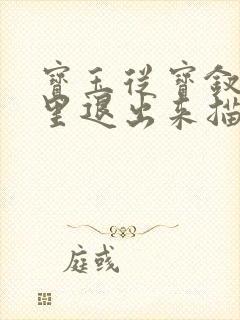 寶玉從寶釵
里退出来描
庭彧